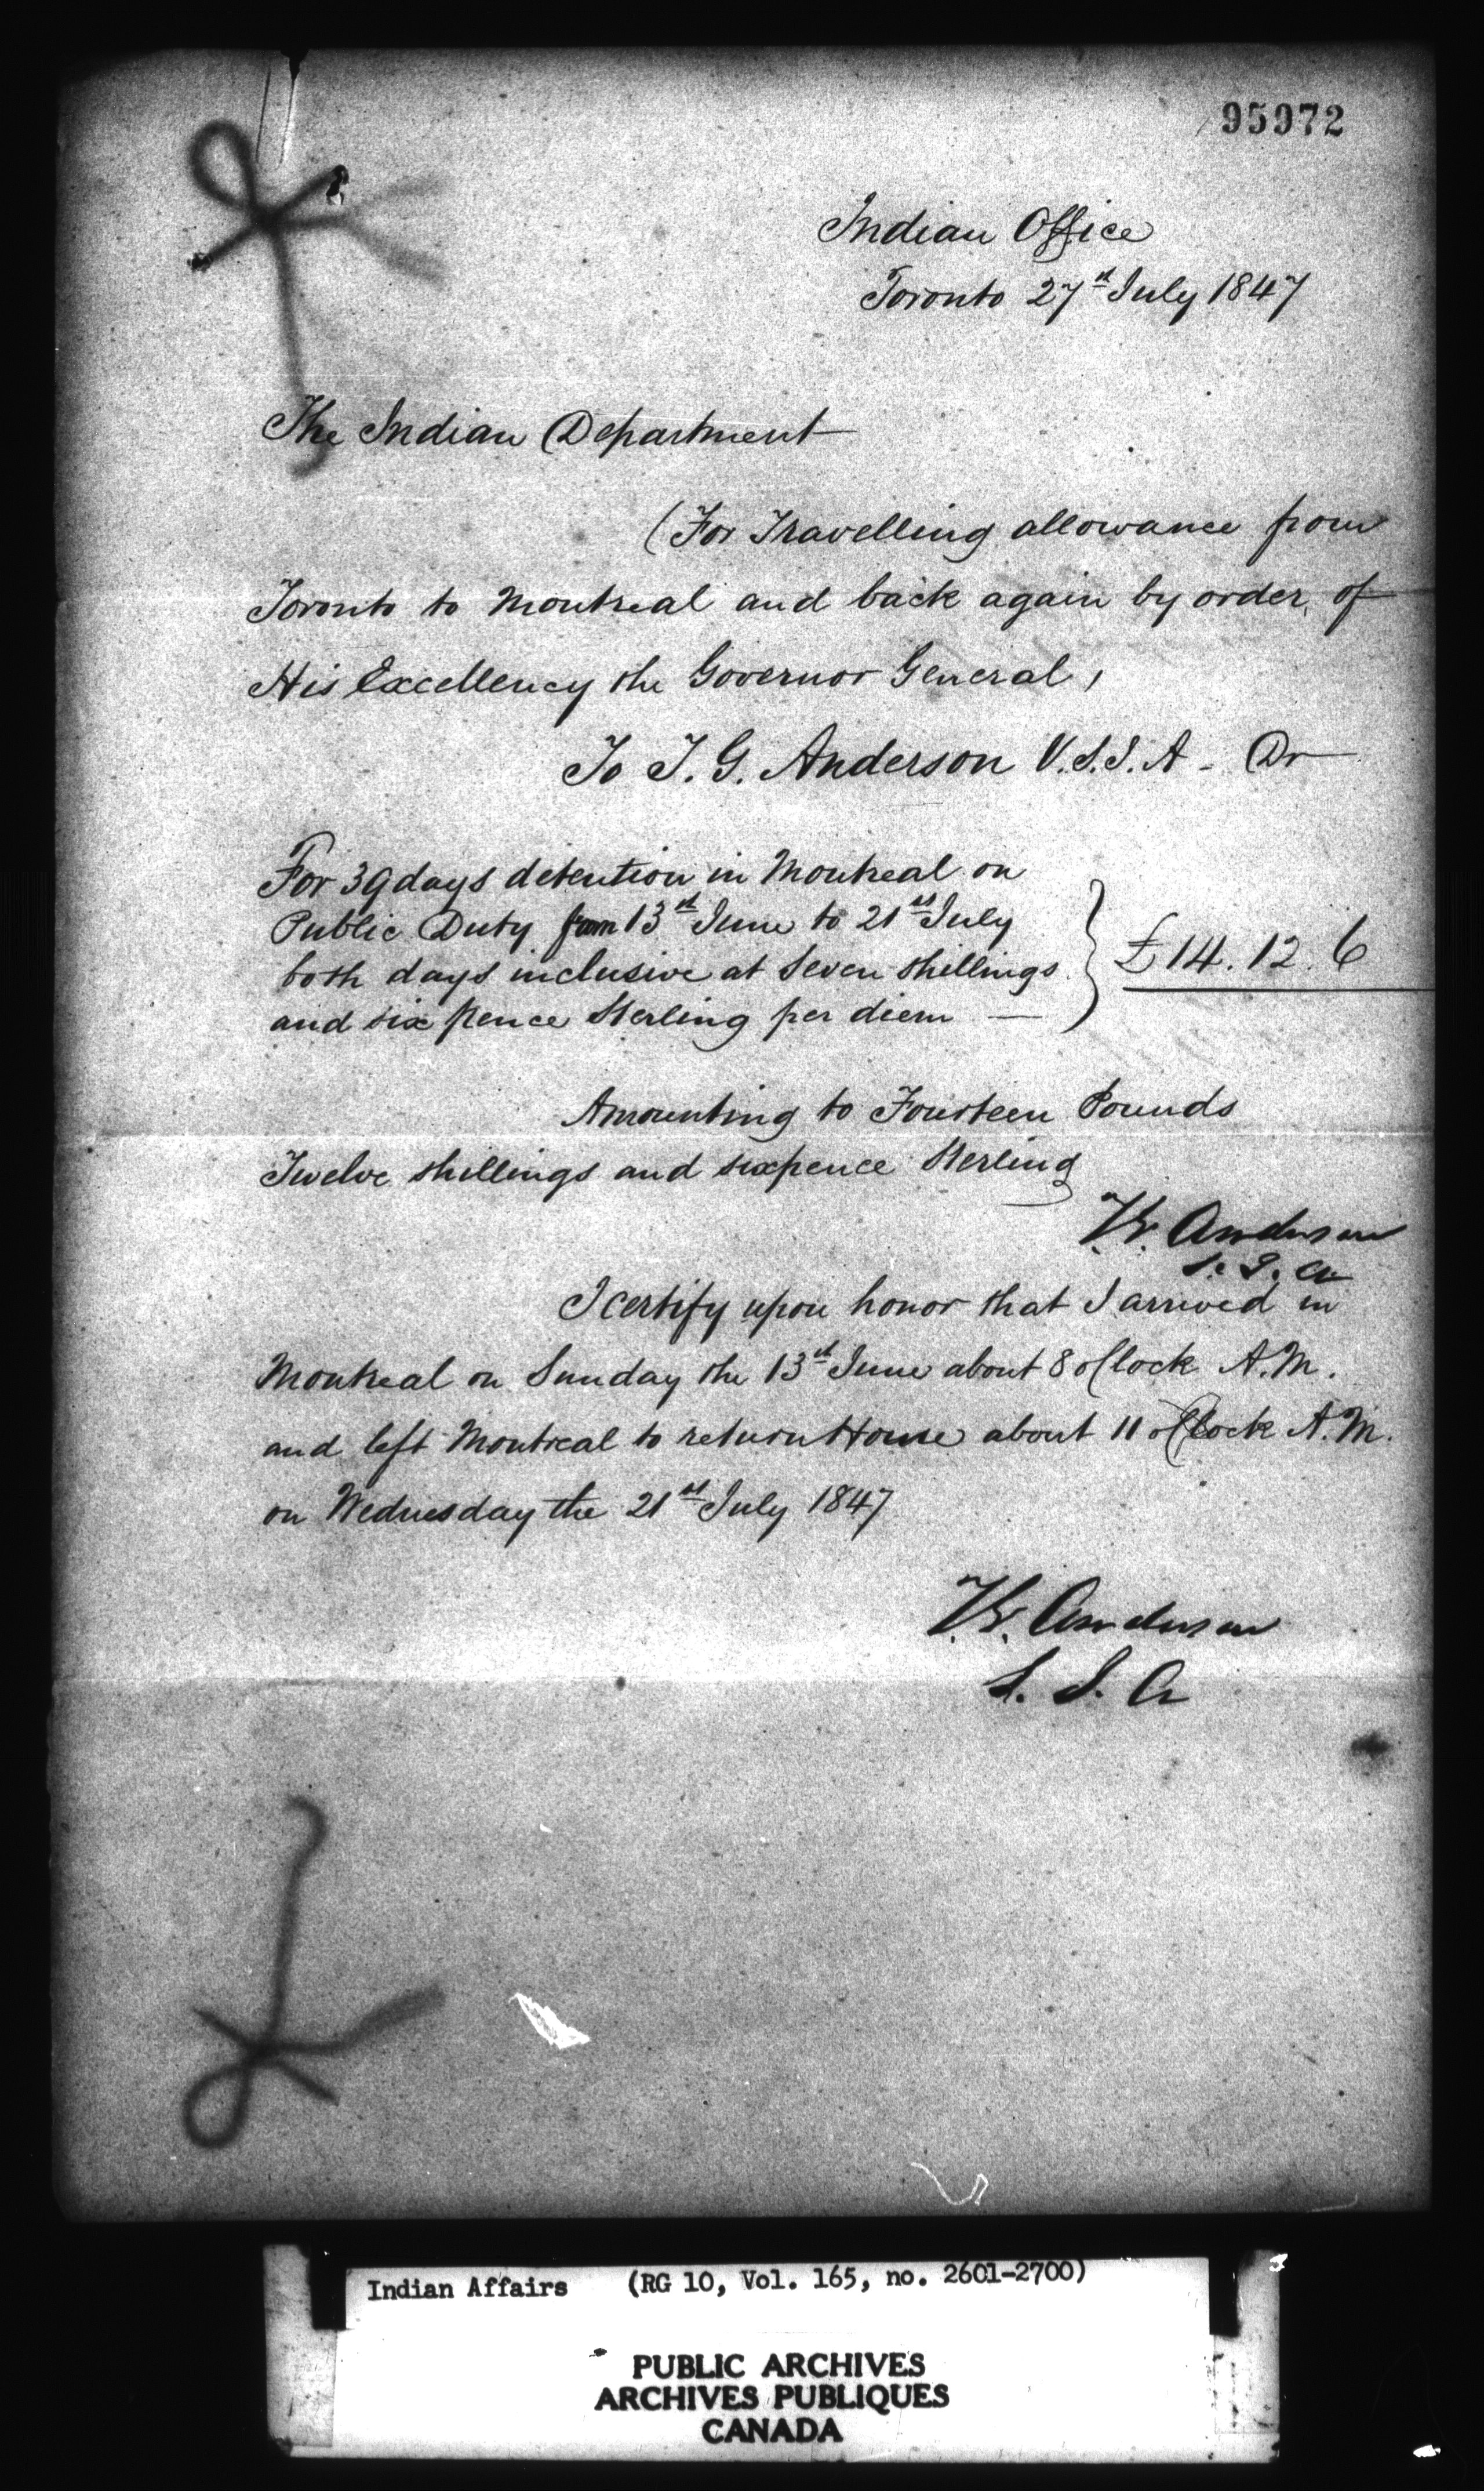 95972
Indian Office
Toronto 27th July 1847
The Indian Department
(For Travelling allowance from
Toronto to Montreal and back again by order of
His Excellency the Governor General,
To T. G. Anderson V.S.I.A - Dr
For 39 days detention in Montreal on
Public Duty from 13th June to 21st July
both days inclusive at Seven Shillings
and six pence Sterling per diem —
£14.12.6
Amounting to Fourteen Pounds
Twelve shillings and sixpence Sterling
T.G. Anderson
S.I.A
I certify upon honor that I arrived in
Montreal on Sunday the 13th June about 8 oClock A.M.
and left Montreal to return Home about 11 oClock A.M.
on Wednesday the 21st July 1847
T.G. Anderson
S.I.A
Indian Affairs (RG 10, Vol. 165, no. 2601-2700)
PUBLIC ARCHIVES
ARCHIVES PUBLIQUES
CANADA